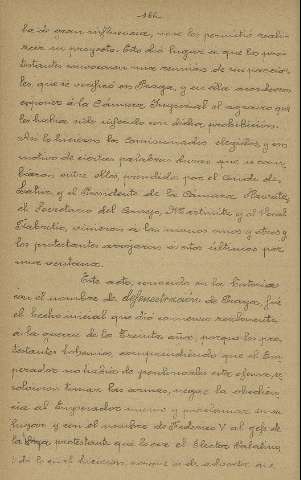 -166-
ba de gran influencia, no se les permitió reali-
zar su proyecto. Esto dió lugar a que los pro-
testantes convocaran una reunión de su parciales
les, que se verificó en Praga, y en ella acordaron
exponer á la Cámara Imperial el agravio que
les había sido inferido con dicha prohibición.
Así lo hicieron los comisionados elegidos, y con
motivo de ciertas palabras duras que se cam-
biaron entre ellos, presididos por el Conde de
y el Presidente de la Cámara
el Secretario del Consejo, Martinitz y al Vocal
Slabatia, vinieron a las manos unos y otros y
los protestantes arrojaron a estos últimos por
una ventana.
Este acto, conocido en la historia
con el nombre de defenestración de Praga, fué
el hecho inicial que dió comienzo realmente
a la guerra de los Treinta años, porque los pro-
testantes bohemios, comprendiendo que el Em-
perador no había de perdonarles esta ofensa, re-
solvieron tomar las armas, negar la obedien-
cia al Emperador mismo y proclamar en su
lugar y con el nombre de Federico V al jefe de
la Liga protestante que lo era el Elector Palatino